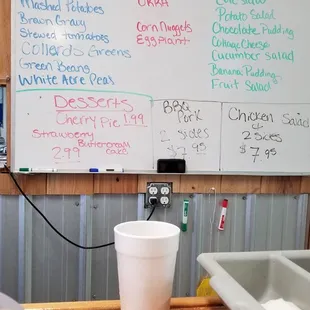 Mashed Potatoes
Brown Gravy
Stewed Tomatoes
Collards Greens
Green Beans
White Acre Peas
OKRA
Corn Nuggets
Egg Plant
Potato Salad
Chocolate Pudding
Cottage Cheese
Cucumber Salad
Banana Pudding
Fruit Salad
Desserts
Cherry Pie 1.99
Strawberry
2.99
BBQ
Pork
2 Sides
$7.95
Chicken Salad
2 Sides
$7.95